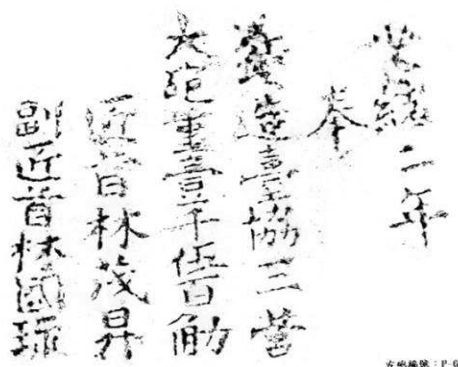 光緒二年
奉
鑄造臺協三營
大砲重壹千伍百觔
匠首林茂昇
副匠首林國
古砲編號：P-